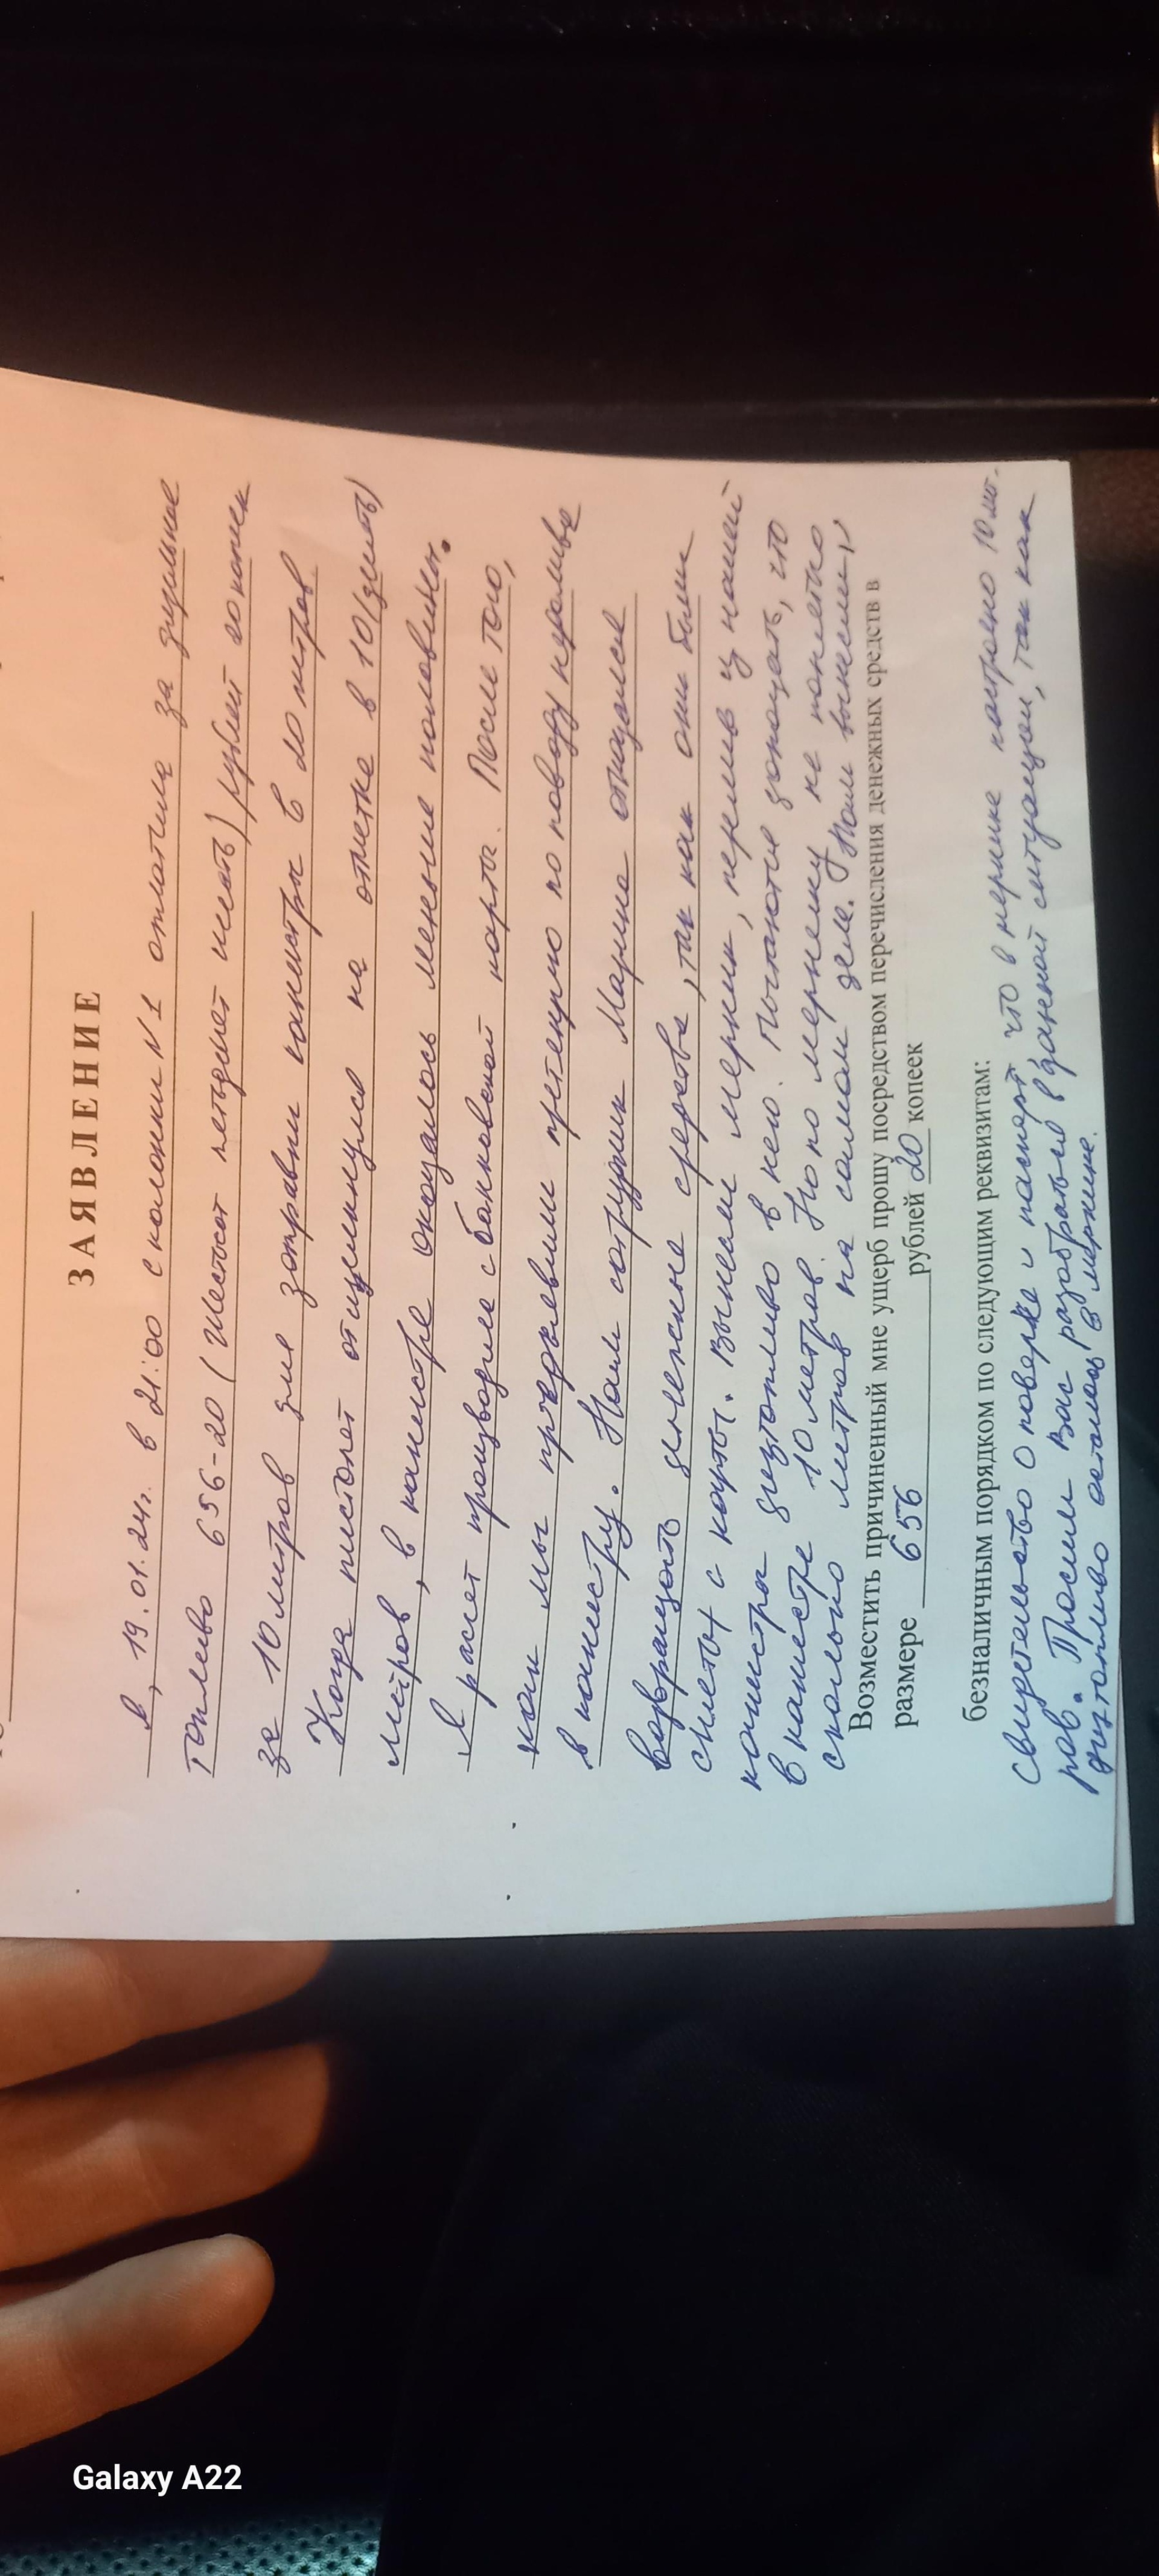 ЗАЯВЛЕНИЕ
Я, 19.01.24г. в 21:00 с колонки N1 оплатила за дизельное
топливо 656-20 (Шестьсот петдесет шесть) рублей 20 копеек
за 10 литров для заправки канистры в 20 литров
Когда пистолет отщелкнулся на отметке в 10 (десять)
литров, в канистре оказалось меньше половины.
Я расчет производила с банковской карты. После того,
как мы предъявили претензию по поводу недолива
в канистру. Нам сотрудник Марина отказался
возвращать денежные средства, так как они были
сняты с карты. Вынесли мерник, перелив из нашей
канистры дизтопливо в него. Пытаются доказать, что
в канистре 10 литров. Но по мернику не понятно
сколько литров на самом деле. Нам вынесли,
Возместить причиненный мне ущерб прошу посредством перечисления денежных средств в
размере 656 рублей 20 копеек
безналичным порядком по следующим реквизитам:
свидетельство о поверке и паспорт что в мернике настроено 10 лит-
ров. Просим Вас разобраться в данной ситуации, так как
дизтопливо осталось в мернике.
Galaxy A22